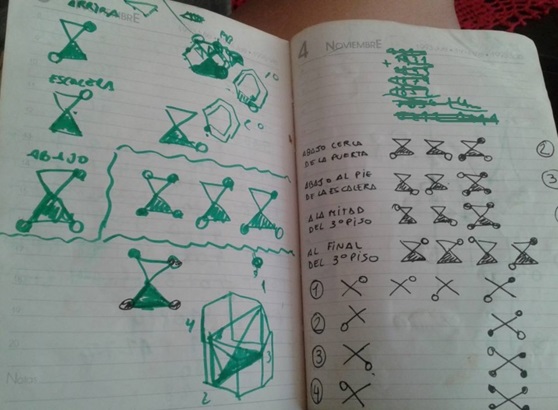 ARRIBA
ESCALERA
ABAJO
1
4
3
2
4 NOVIEMBRE
ABAJO CERCA
DE LA PUERTA
2
ABAJO AL PIE
DE LA ESCALERA
3
A LA MITAD
DEL 3º PISO
AL FINAL
DEL 3º PISO
1
2
3
4